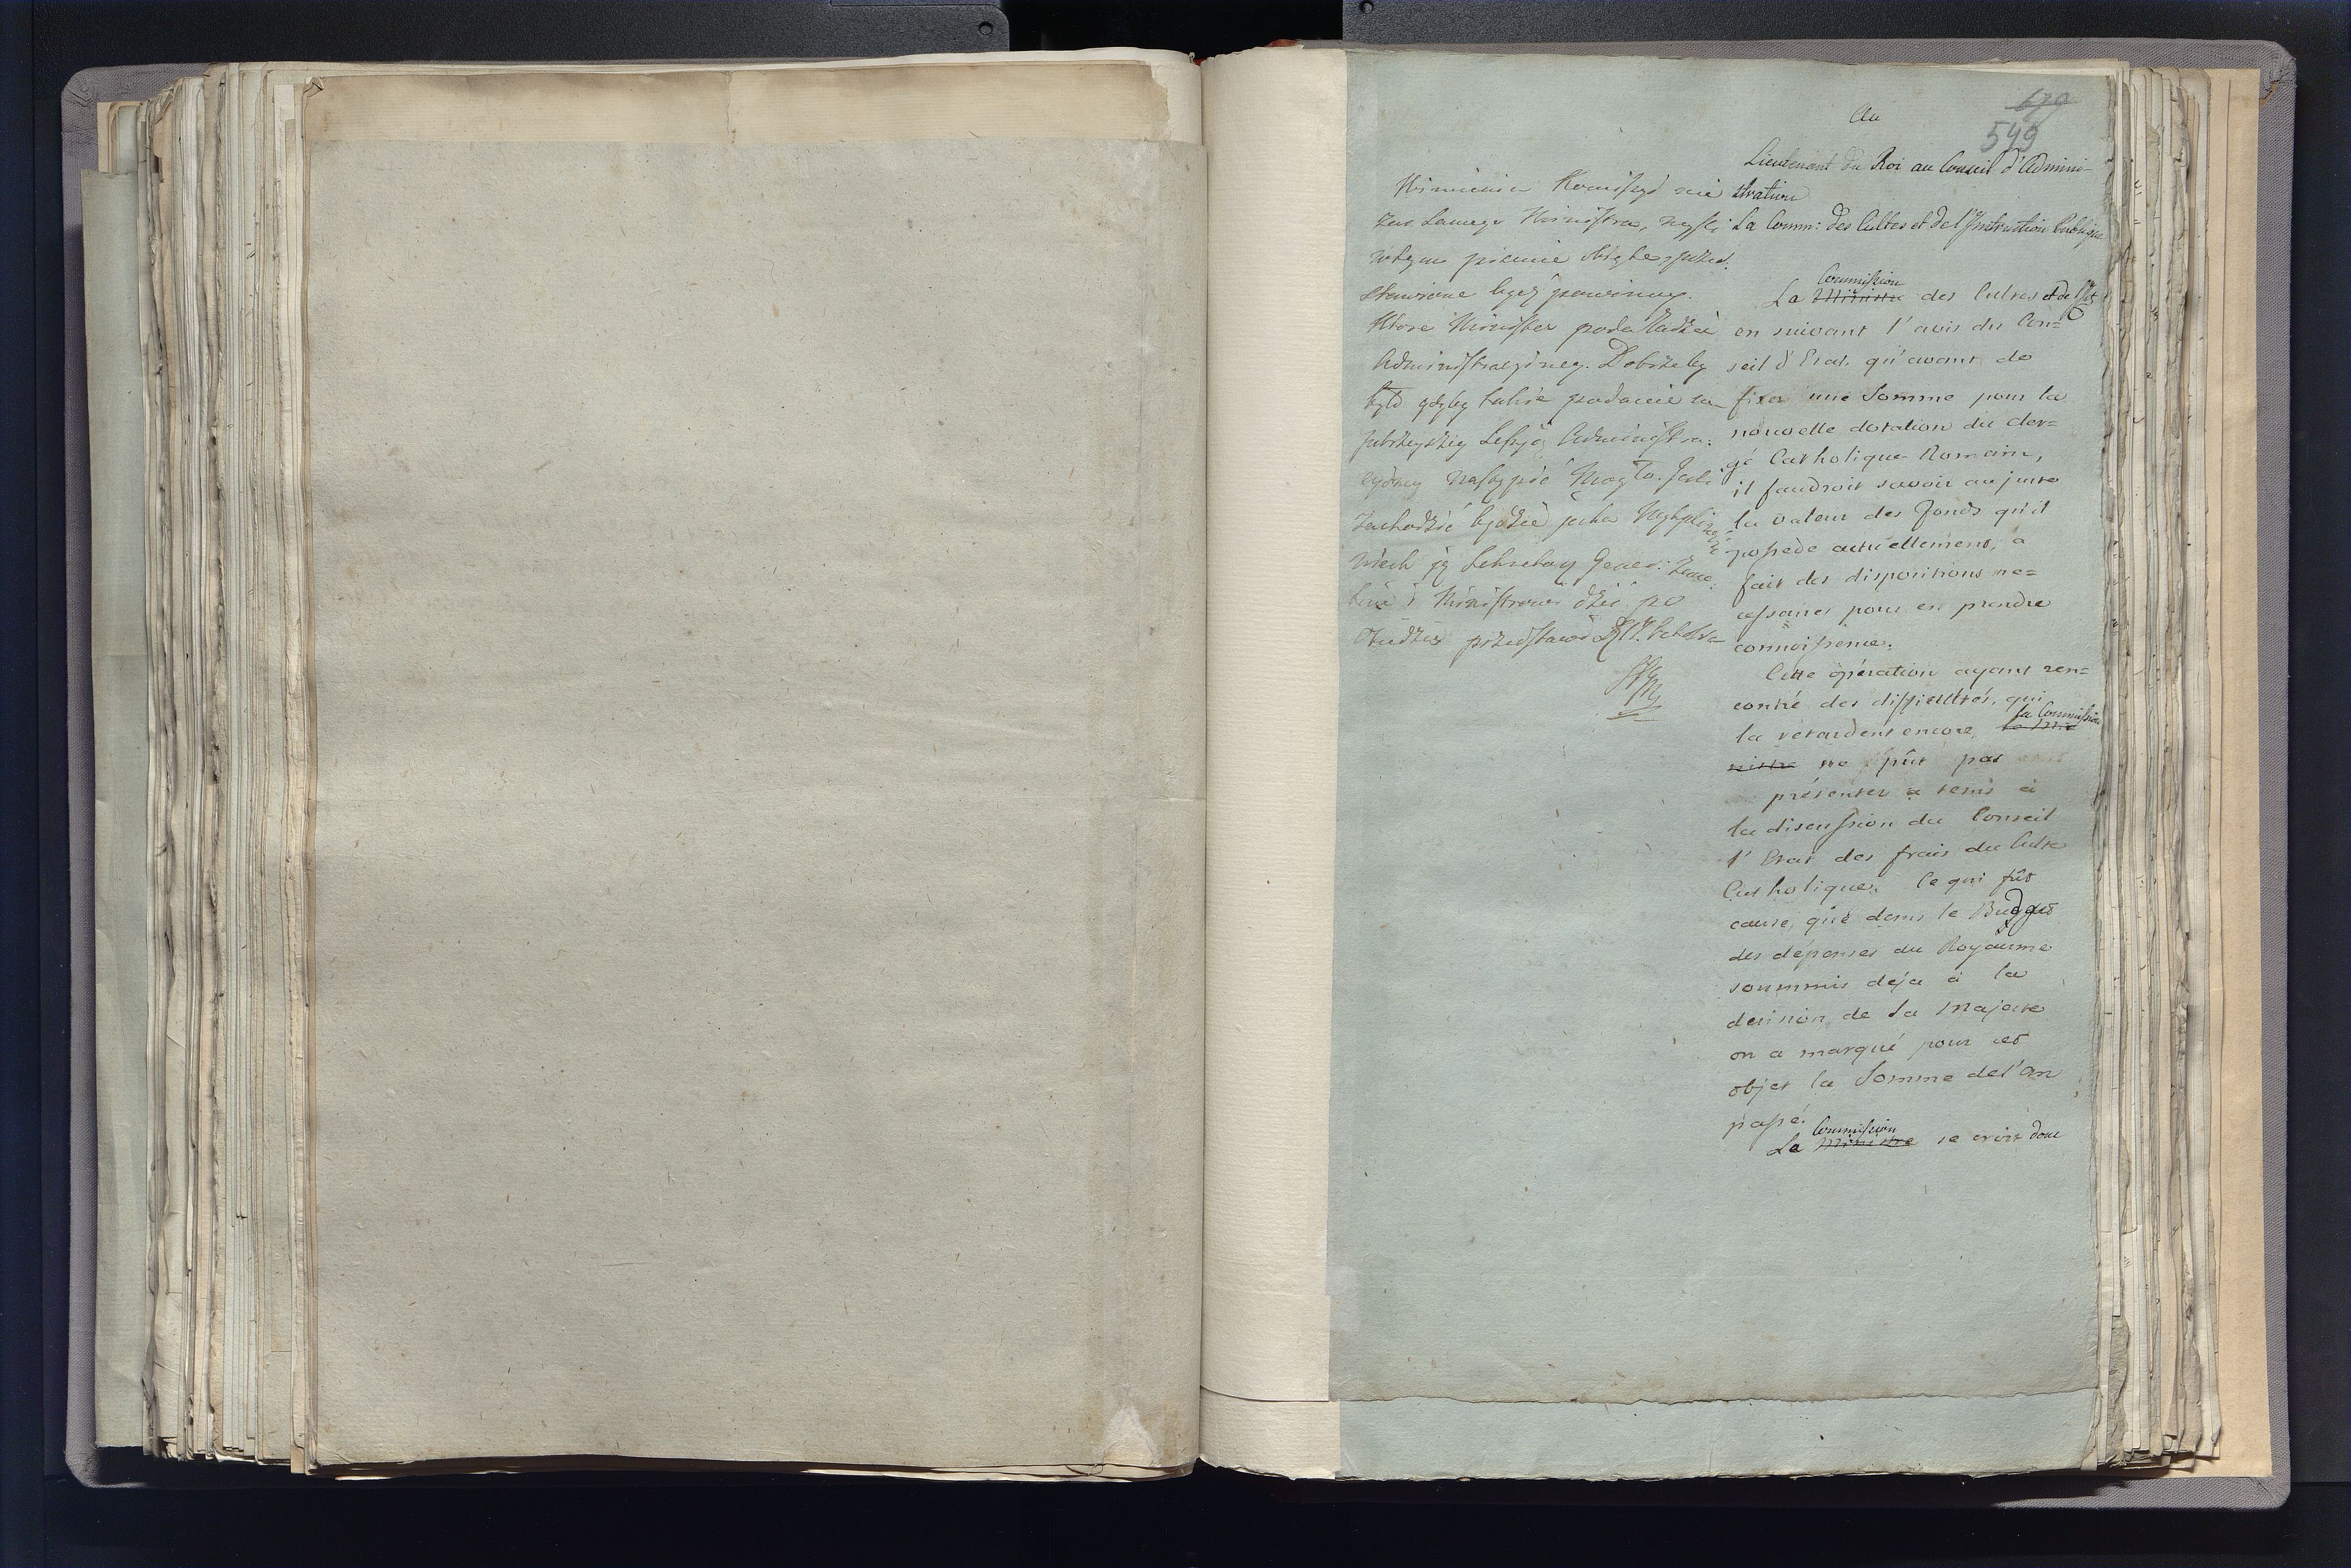 679
549
Au
Lieutenant du Roi au Conseil d'Admini-
stration
La Comm: des Cultes et de l'Instruction Publique
Commission
La Ministre des Cultes et de l'
en suivant l'avis du Con=
seil d'Etat. qu'avant de
fixer une Somme pour la
nouvelle dotation du cler=
gé Catholique Romain,
il faudroit savoir au juste
la valeur des fonds qu'il
possède actuellement, a
fait des dispositions ne=
cessaires pour en prendre
connoissence.
Cette opération ayant ren=
contré des difficultés, qui
la retardent encore, la Commission
le Mi
nistre ne pût pas
présenter a tems à
la discussion du Conseil
l'Etat des frais du Culte
Catholique. Ce qui fût
cause, que dans le Budget
des dépenses du Royaume
soummis déja à la
decision de Sa Majeste
on a marqué pour cet
objet la Somme de l'an
passé.
Commission
La Ministre se croit donc
W imieniu Komissyi nie
zaś samego Ministra, myśli
w tym piśmie objęte, przed-
stawione być powinny.
Które Minister poda Radzie
Administracyiney. Dobrze by
było gdyby takie podanie na
jutrzeyszey Sessyi Administra:
cyiney nastąpić mogło. Jeśli
zachodzić będzie jaka wątpliwość
niech ją Sekretarz Gener:
i Ministrowi dziś po
obiedzie przedstawi